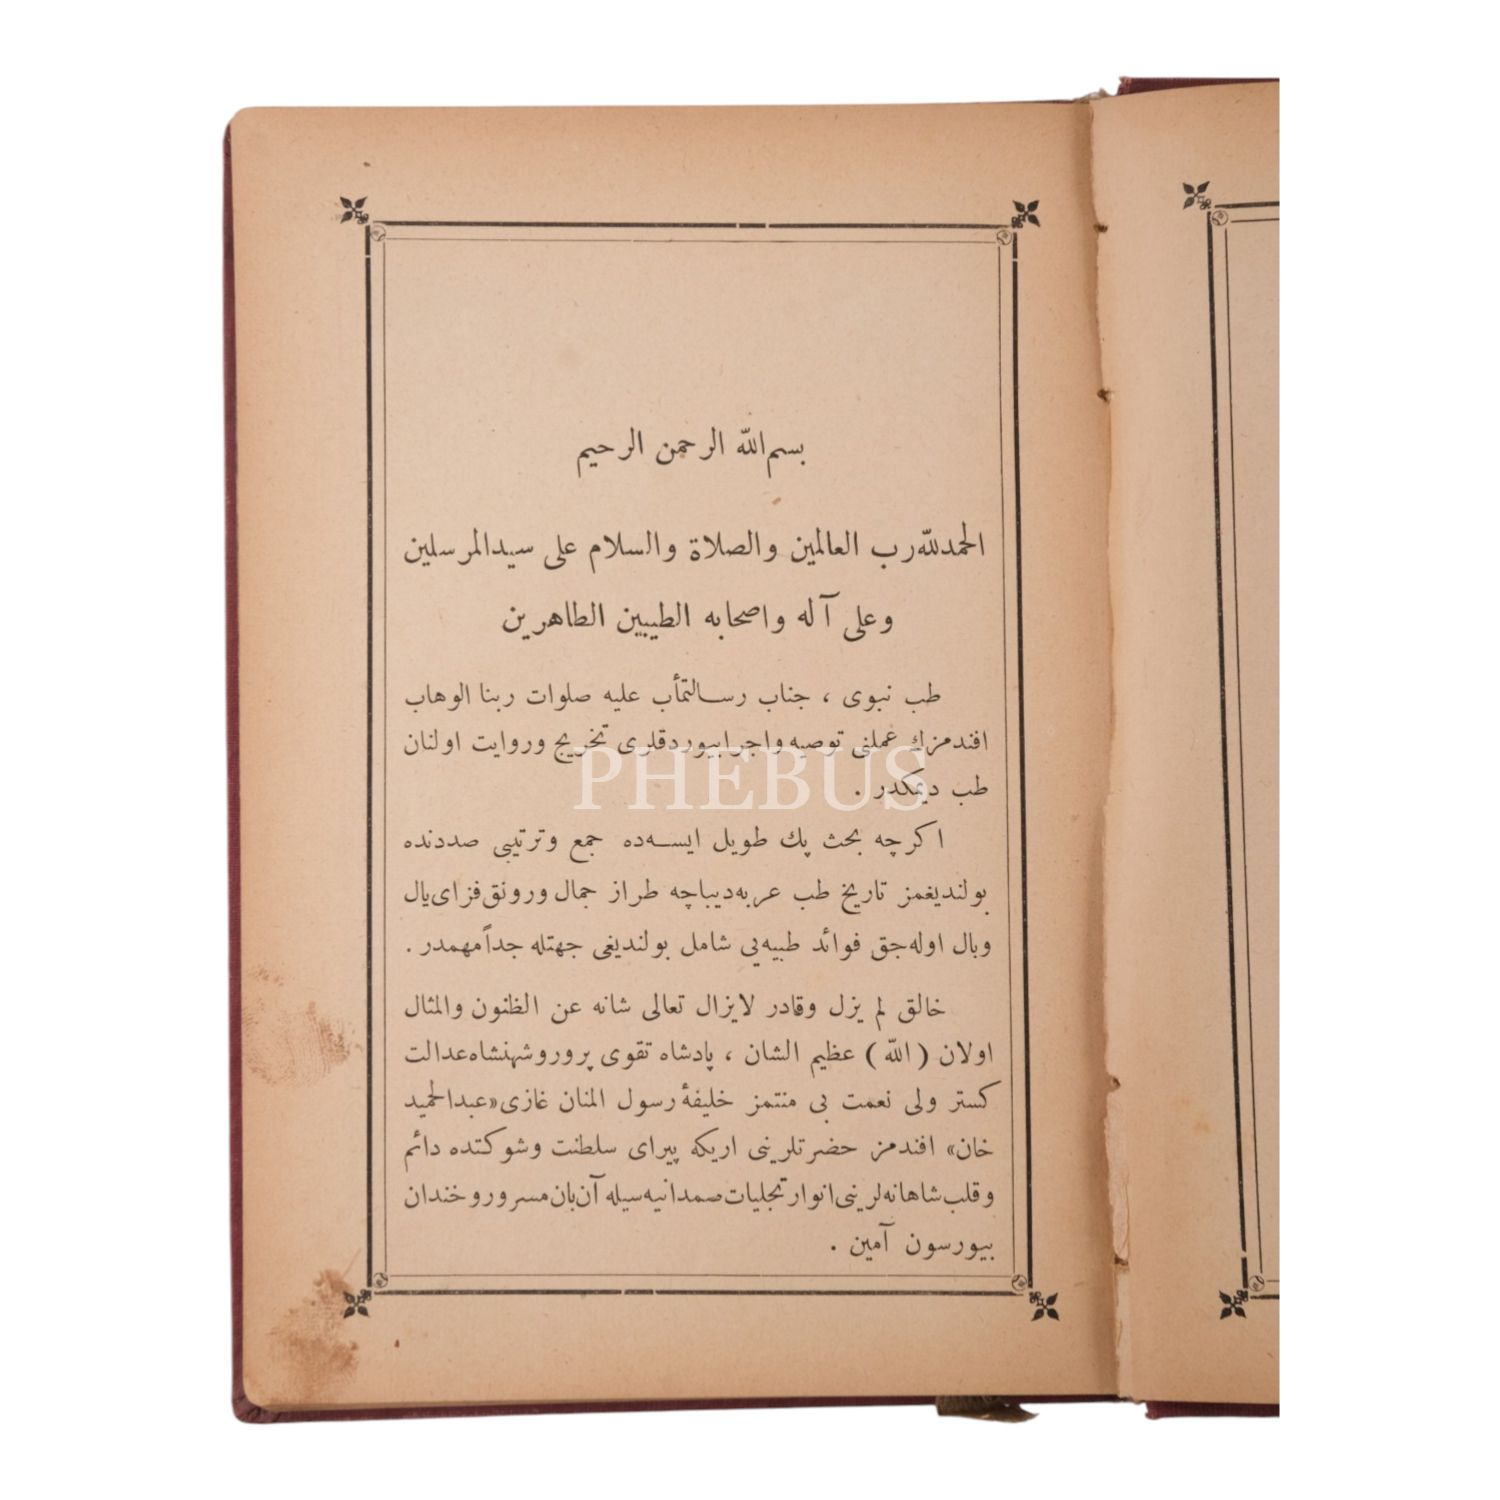 بسم الله الرحمن الرحيم
الحمد لله رب العالمين والصلاة والسلام على سيد المرسلين
وعلى آله واصحابه الطيبين الطاهرين
طب نبوى ، جناب رسالتمأب عليه صلوات ربنا الوهاب
افندمزك عملنى توصيه واجرا بيوردقلرى تخريج وروايت اولنان
طب ديمكدر .
اكرچه بحث پك طويل ايسه‌ده جمع وترتيبى صددنده
بولنديغمز تاريخ طب عربه ديباچه طراز جمال ورونق فزاى يال
وبال اوله‌جق فوائد طبيه‌يى شامل بولنديغى جهتله جداً مهمدر .
خالق لم يزل وقادر لايزال تعالى شانه عن الظنون والمثال
اولان ( الله ) عظيم الشان ، پادشاه تقوى پرور وشهنشاه عدالت
كستر ولى نعمت بى منتمز خليفۀ رسول المنان غازى «عبدالحميد
خان» افندمز حضرتلرينى اريكه پيراى سلطنت وشوكتده دائم
وقلب شاهانه‌لرينى انوار تجليات صمدانيه‌سيله آن بان مسرور وخندان
بيورسون آمين .
PHEBUS